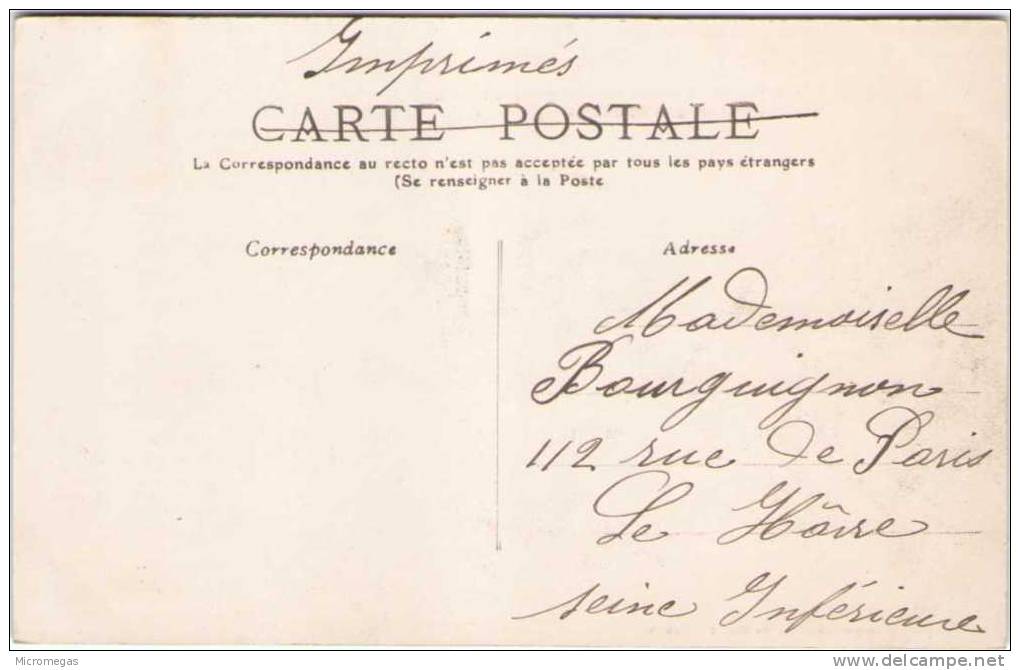 Imprimés
CARTE POSTALE
La Correspondance au recto n'est pas acceptée par tous les pays étrangers
(Se renseigner à la Poste
Correspondance
Adresse
Mademoiselle
Bourguignon
112 rue de Paris
Le Hâvre
seine Inférieure
Micromegas
delcampe.net